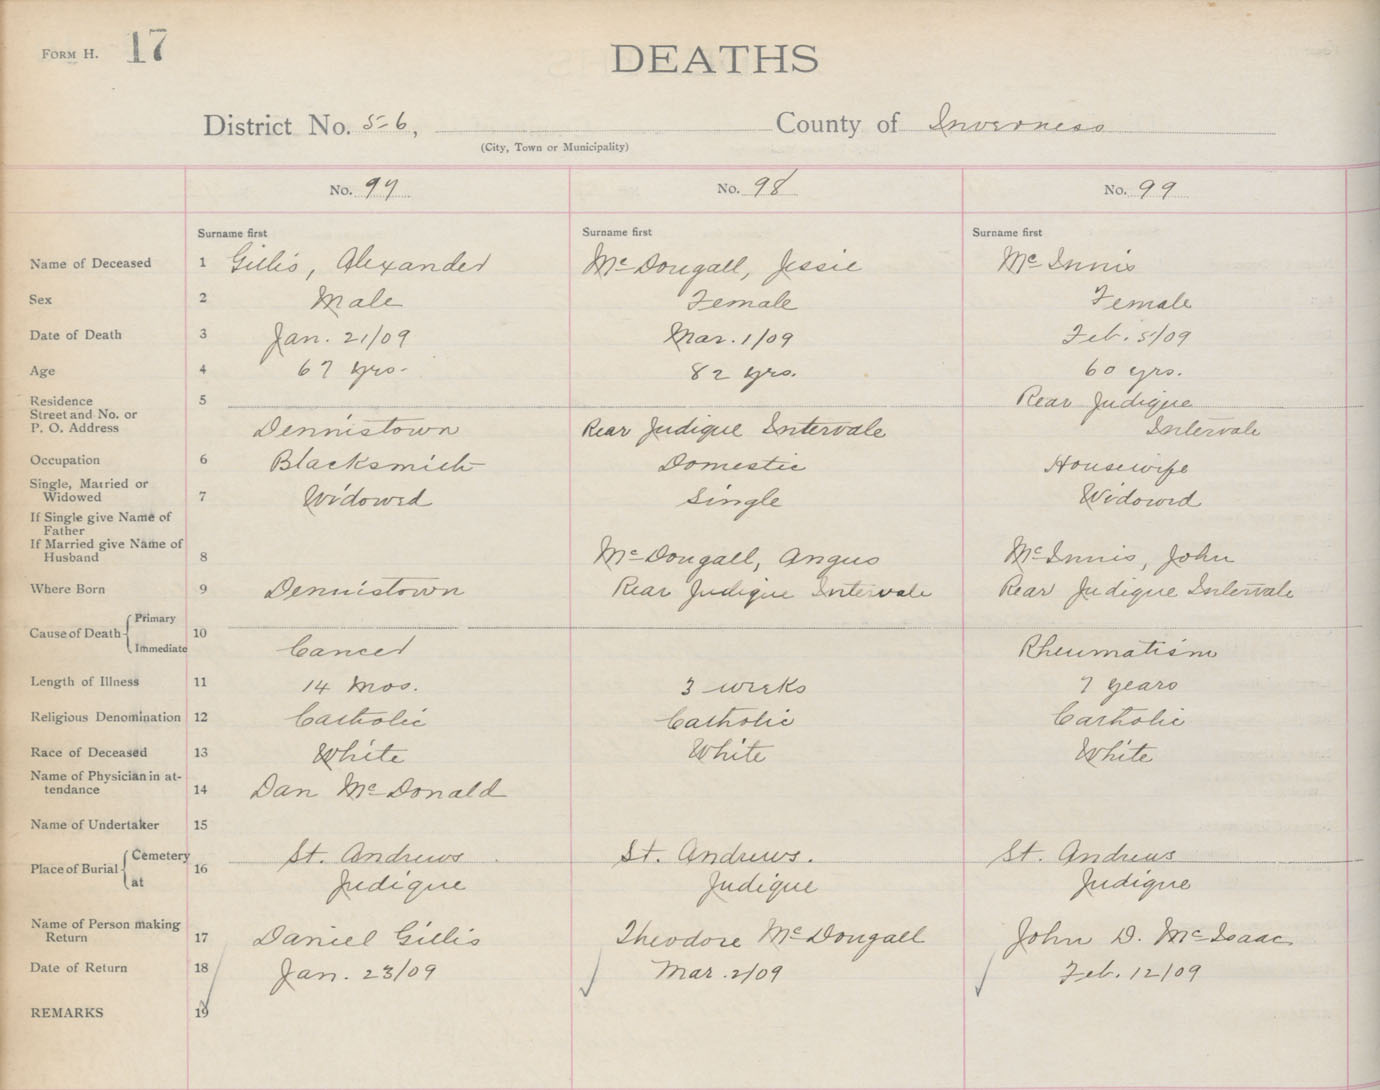 FORM H. 17
DEATHS
District No. 5-6, County of Inverness
(City, Town or Municipality)
No. 97 No. 98 No. 99
Surname first Surname first Surname first
Name of Deceased 1 Gillis, Alexander McDougall, Jessie McInnis
Sex 2 Male Female Female
Date of Death 3 Jan. 21/09 Mar. 1/09 Feb. 5/09
Age 4 67 yrs. 82 yrs. 60 yrs.
Residence 5 Rear Judique
Street and No. or
P. O. Address Dennistown Rear Judique Intervale Intervale
Occupation 6 Blacksmith Domestic Housewife
Single, Married or
Widowed 7 Widowed Single Widowed
If Single give Name of
Father
If Married give Name of
Husband 8 McDougall, Angus McInnis, John
Where Born 9 Dennistown Rear Judique Intervale Rear Judique Intervale
Primary
Cause of Death 10
Immediate Cancer Rheumatism
Length of Illness 11 14 mos. 3 weeks 7 years
Religious Denomination 12 Catholic Catholic Catholic
Race of Deceased 13 White White White
Name of Physician in at-
tendance 14 Dan McDonald
Name of Undertaker 15
Cemetery St. Andrews St. Andrews. St. Andrews
Place of Burial 16
at Judique Judique Judique
Name of Person making
Return 17 Daniel Gillis Theodore McDougall John D. McIsaac
Date of Return 18 Jan. 23/09 Mar. 2/09 Feb. 12/09
REMARKS 19